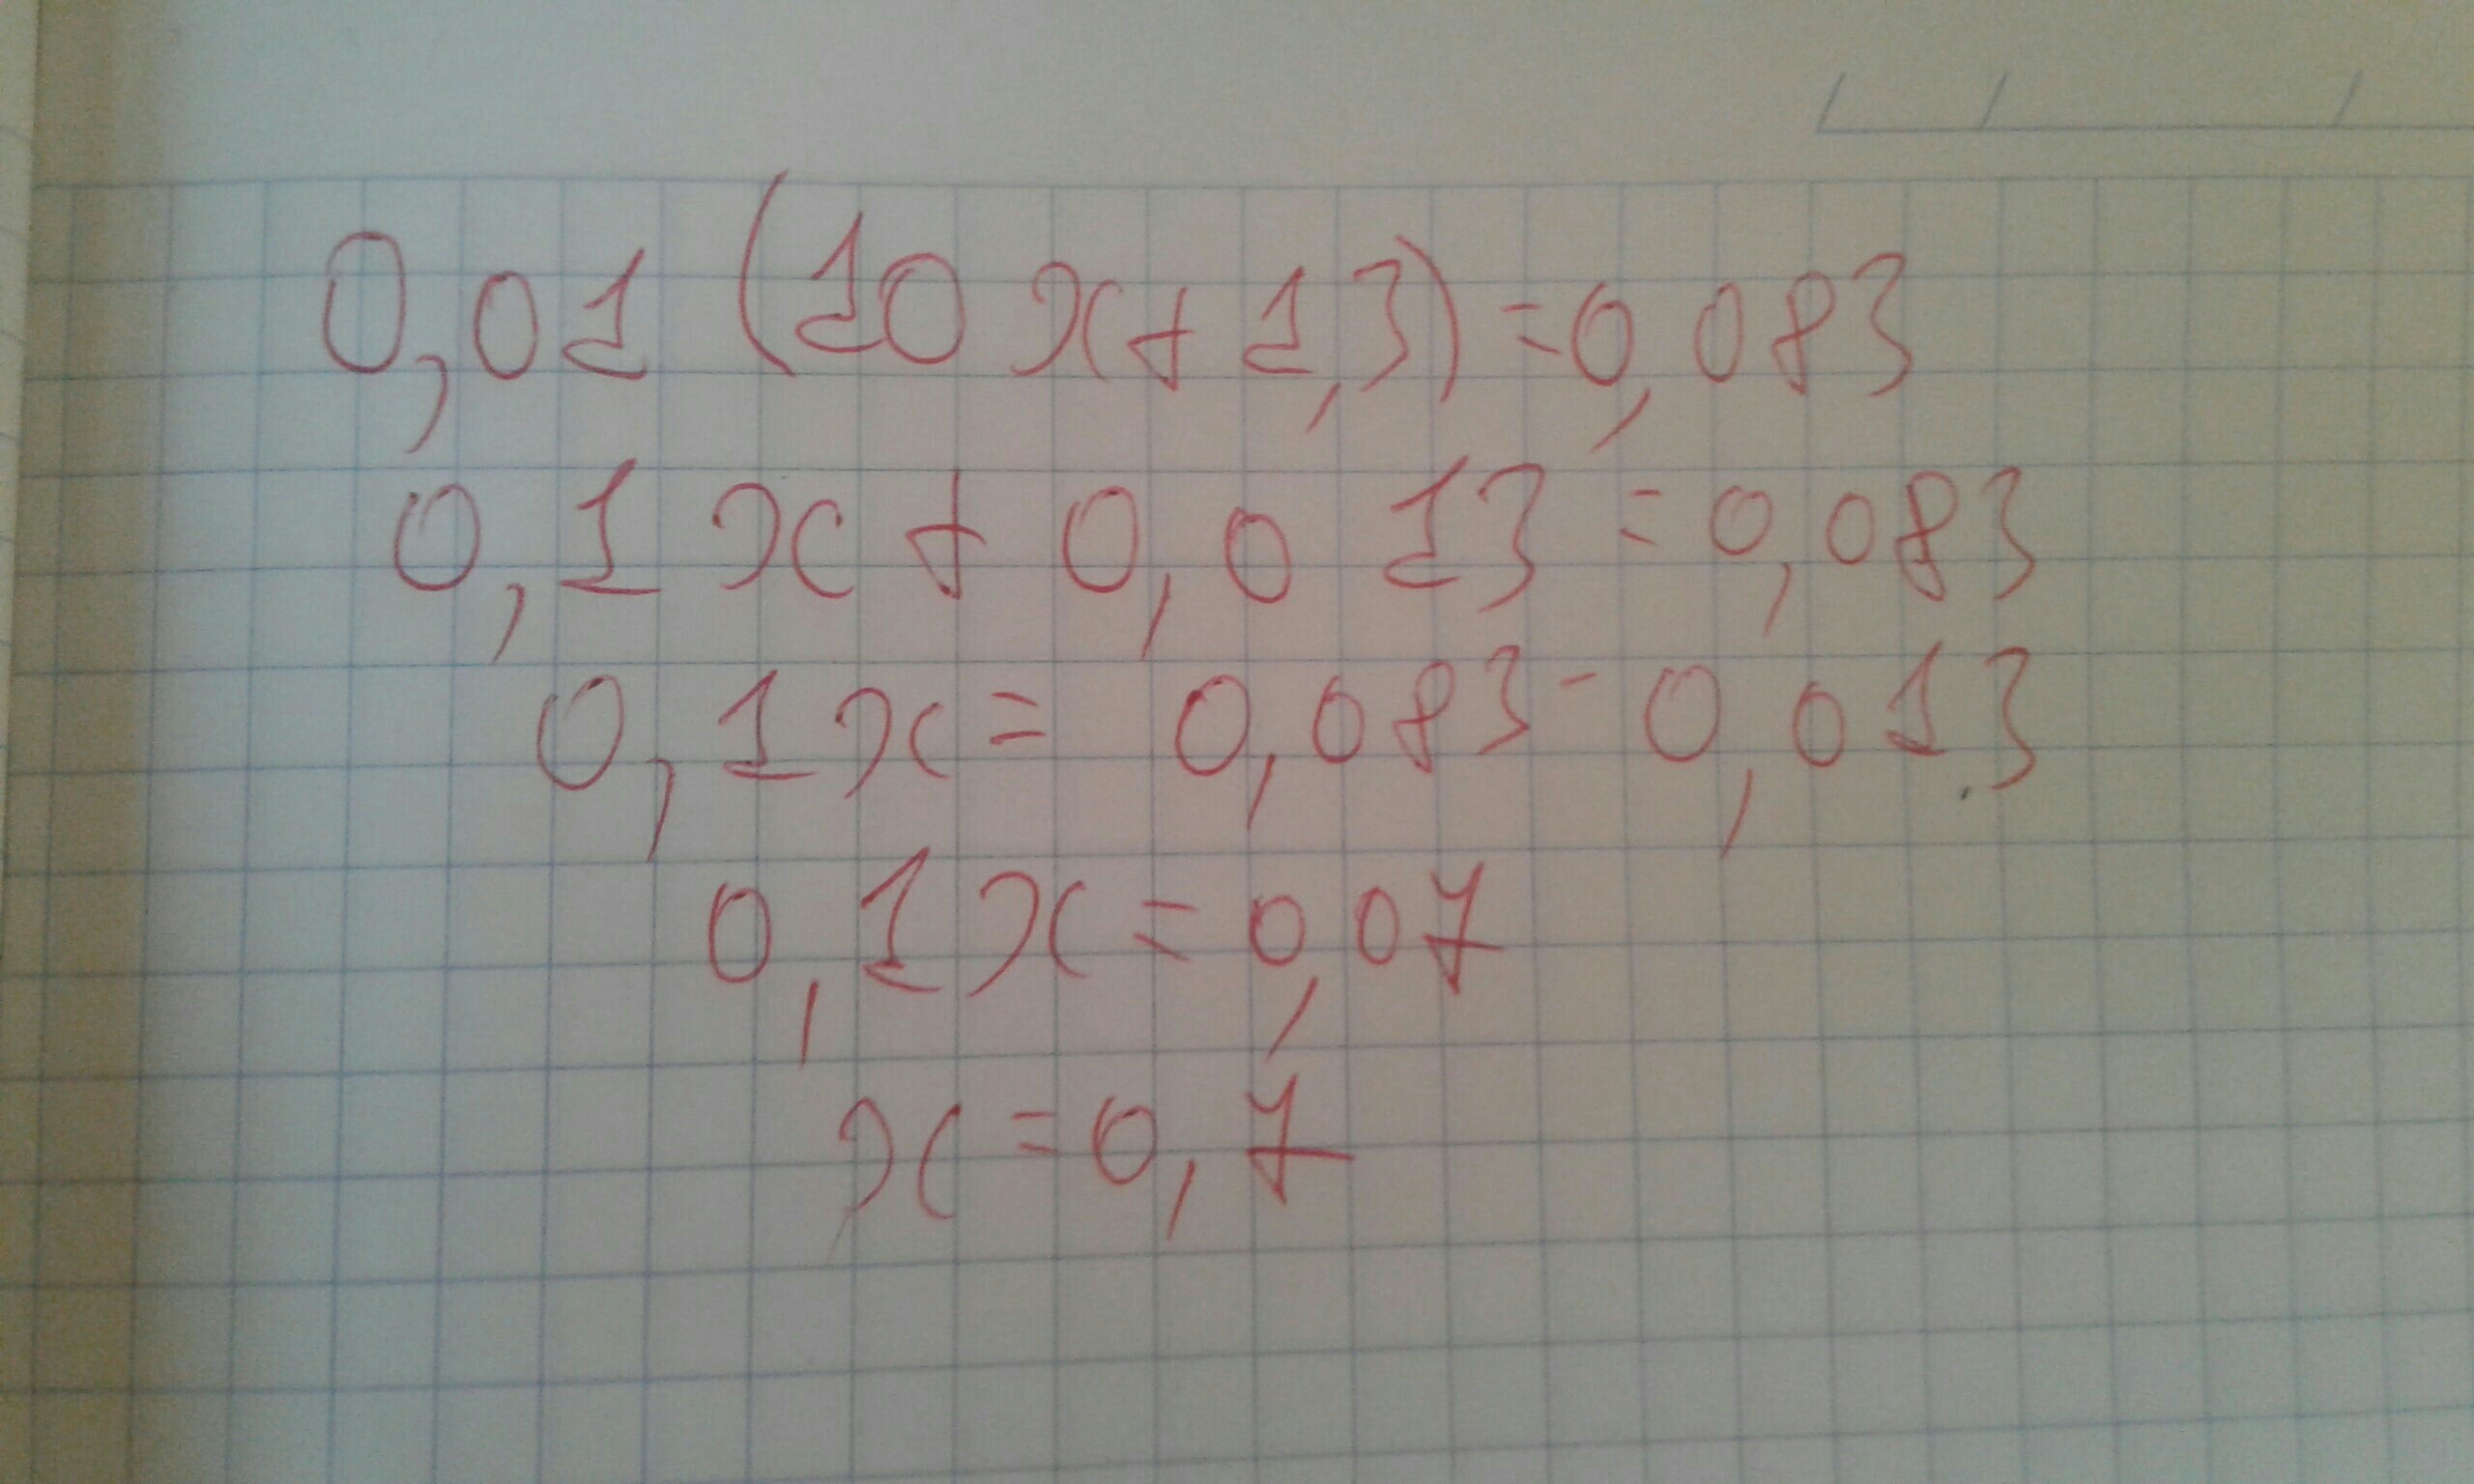 0,01 (10x+1,3)=0,083
0,1x+0,013=0,083
0,1x=0,083-0,013
0,1x=0,07
x=0,7